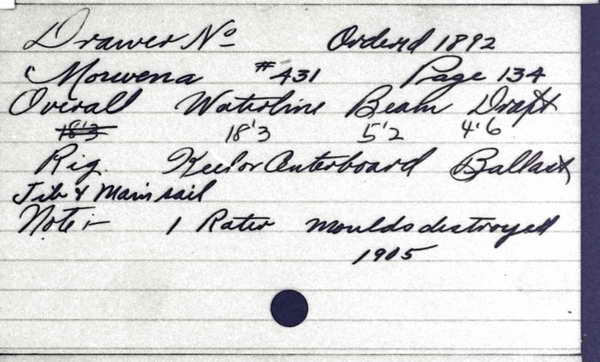 Drawer No Ordered 1892
Morwena #431 Page 134
Overall Waterline Beam Draft
18'3 18'3 5'2 4'6
Rig Keel or Centerboard Ballast
Jib & Mainsail
Note:- 1 Rater moulds destroyed
1905